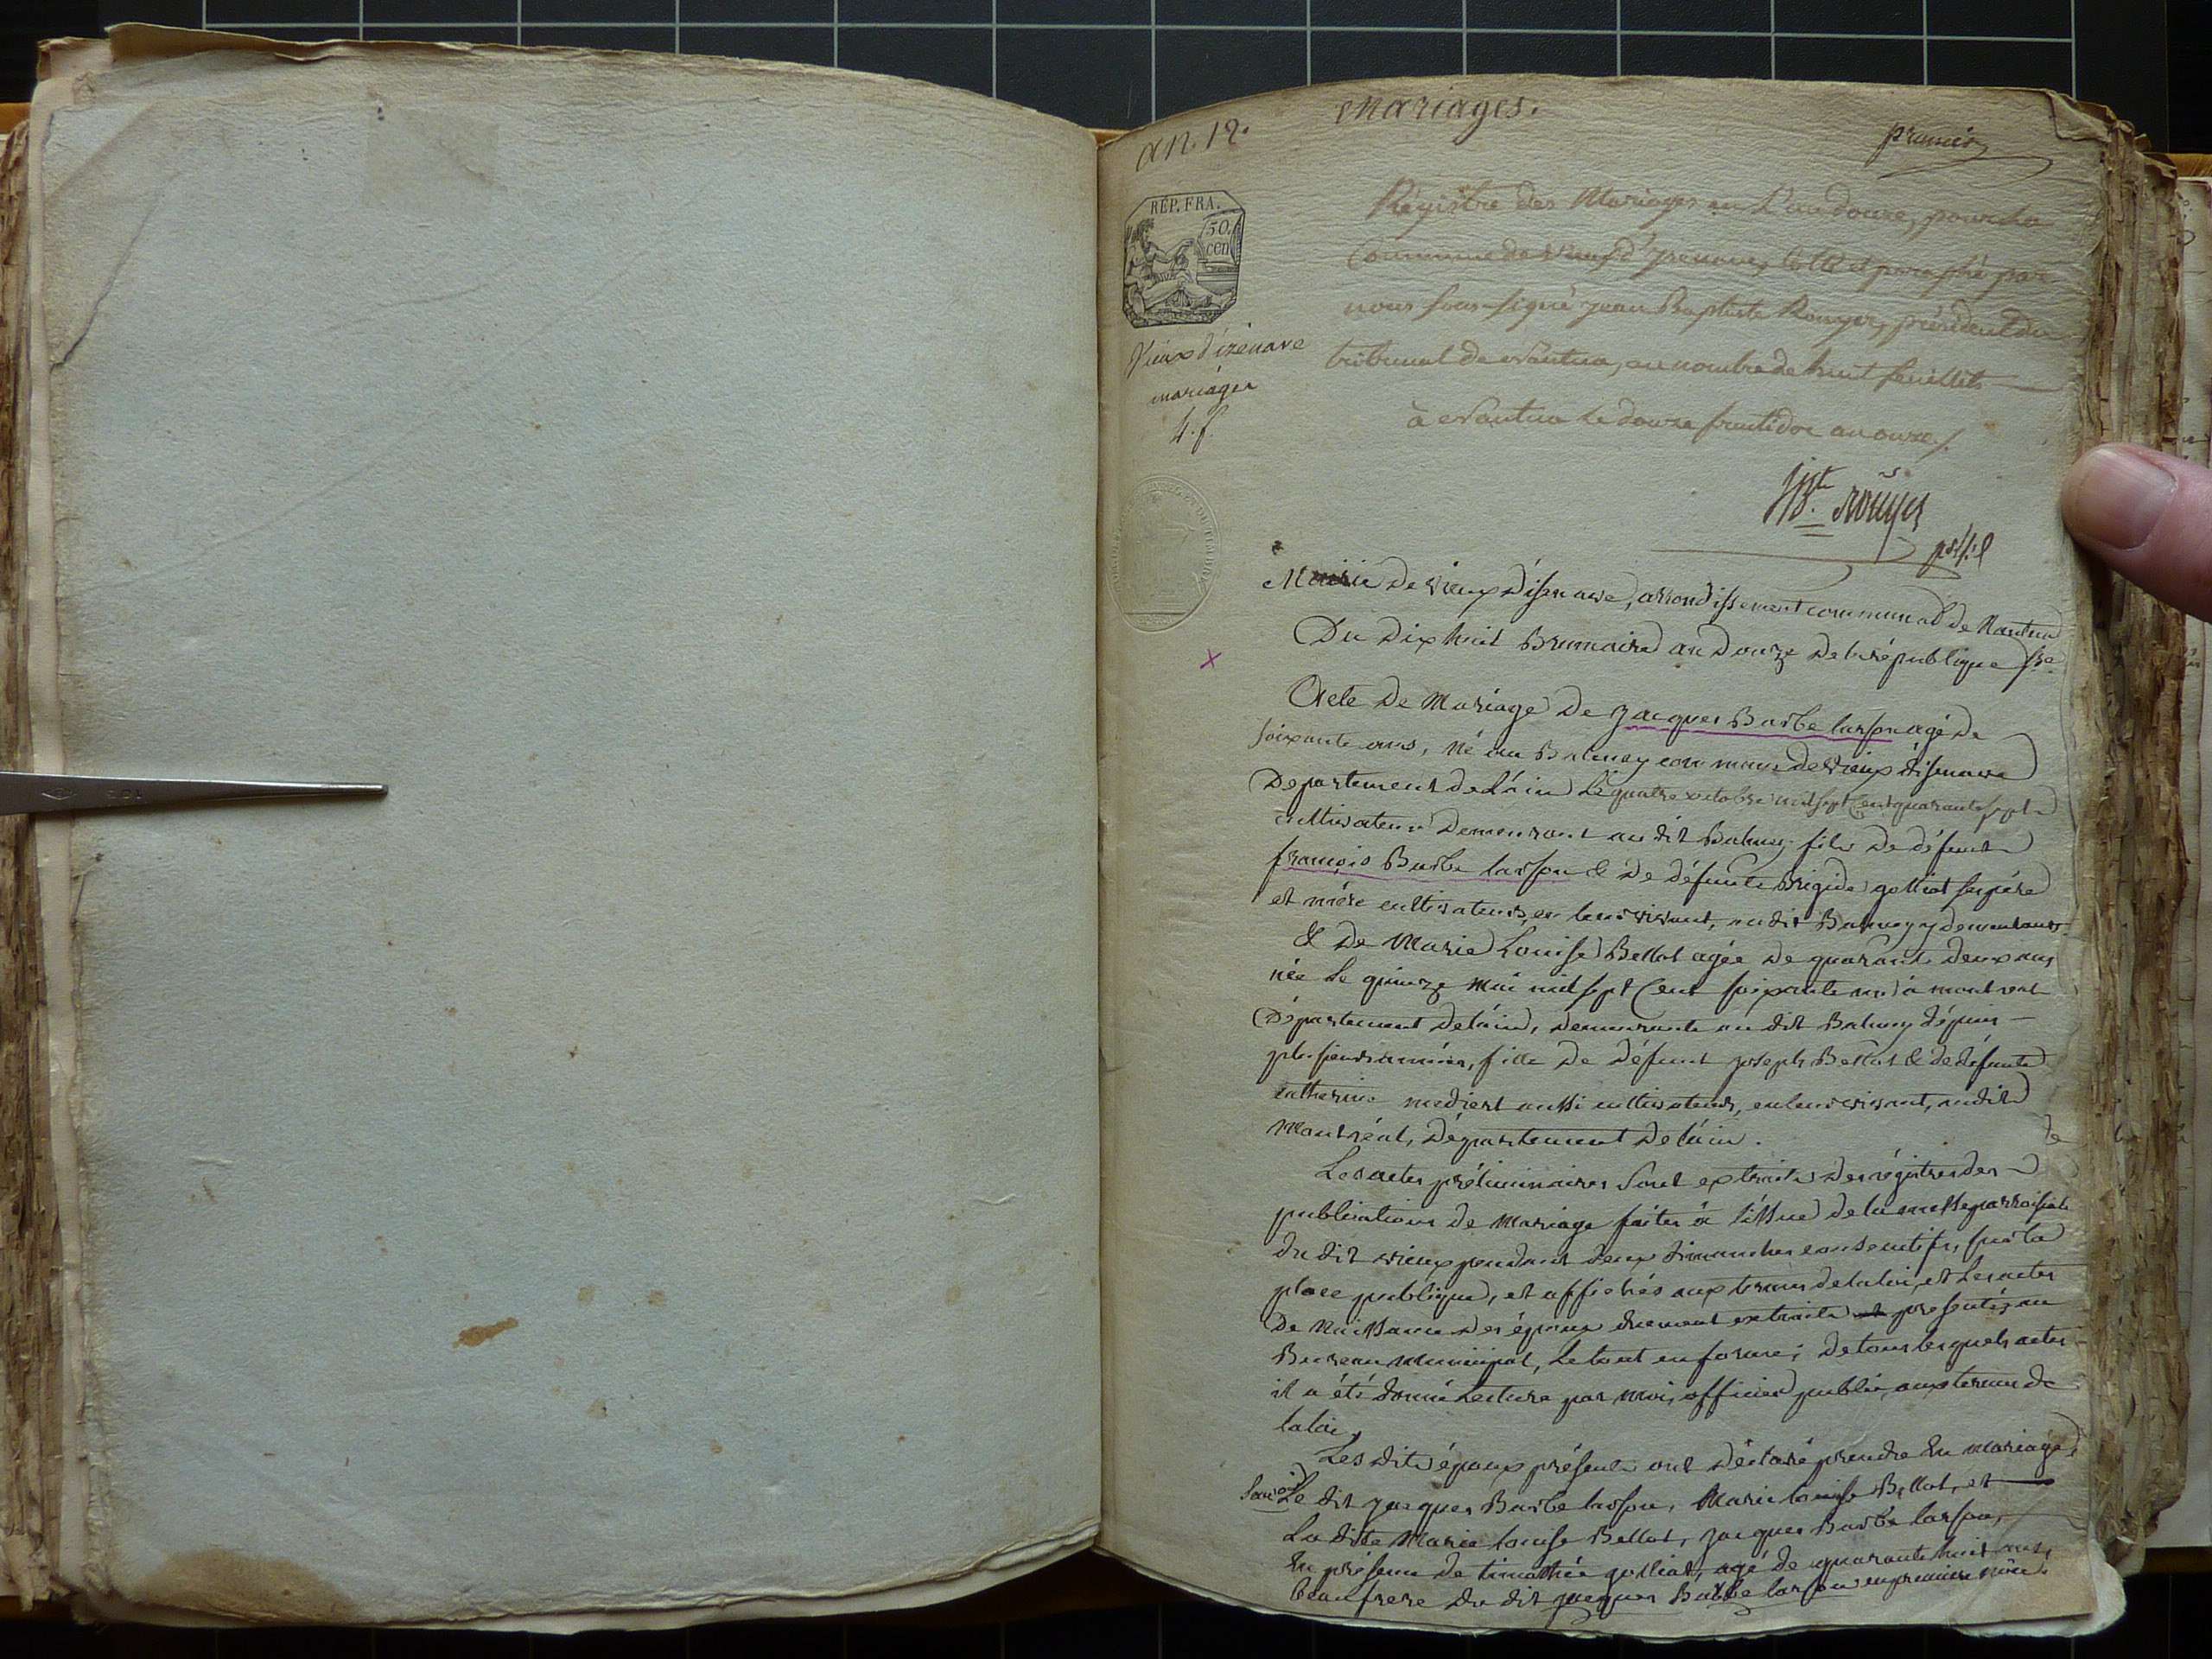 an. 12.
Mariages.
premier
RÉP. FRA.
50.
cen
Vieux d'izenave
mariages
4. f.
Régistre des Mariages en L'an douze, pour La
Commune de Vieux d'Izenave, cotté et paraphé par
nous sous-signé jean Baptiste Rouyer, président du
tribunal de Nantua, au nombre de huit feuillets
à Nantua Le douze fructidor an onze.
JBte. Rouyer
Mairie de vieux d'isenave, arrondissement communal de Nantua
Du dix huit Brumaire an douze de la république fse.
Acte de Mariage de jacques Barbe larson agé de
soixante ans, né au Balmey commune de vieux d'isenave
Departement de L'ain Le quatre octobre mil sept cent quarante sept
cultivateur Demeurant au dit Balmey fils de défunt
françois Barbe larson & de défunte Brigide golliat ses père
et mère cultivateurs, en leur vivant, au dit Balmey y demeurant.
& de Marie Louise Bellot agée de quarante deux ans
née Le quinze Mai mil sept cent soixante un à montreal
Département de lain, demeurante au dit Balmey dépuis
plusieurs années, fille de défunt joseph Bellot & de défunte
catherine aussi cultivateurs, en leur vivant, au dit
Montréal, Département de lain.
Les actes préliminaires sont extraits des régitres des
publications de Mariage faites à l'issue de la messe parroissiale
du dit vieux pendant deux dimanches consécutifs, sur la
place publique, et affichés aux termes de la loi, et Les actes
de Naissance des époux duement extraits et presentés au
Bureau Municipal, Le tout en forme; de tous lesquels actes
il a été donné Lecture par moi, officier public, aux termes de
la loi.
Les dits époux présents ont déclaré prendre En Mariage;
Savoir Le dit jacques Barbe larson, Marie louise Bellot, et
La dite Marie louise Bellot, jacques Barbe larson,
En présence de timothée golliat, agé de quarante huit ans,
beaufrere du dit jacques Barbe larson en premiere nôce.